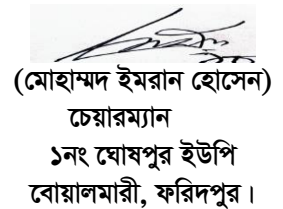 (মোহাম্মদ ইমরান হোসেন)
চেয়ারম্যান
১নং ঘোষপুর ইউপি
বোয়ালমারী, ফরিদপুর।